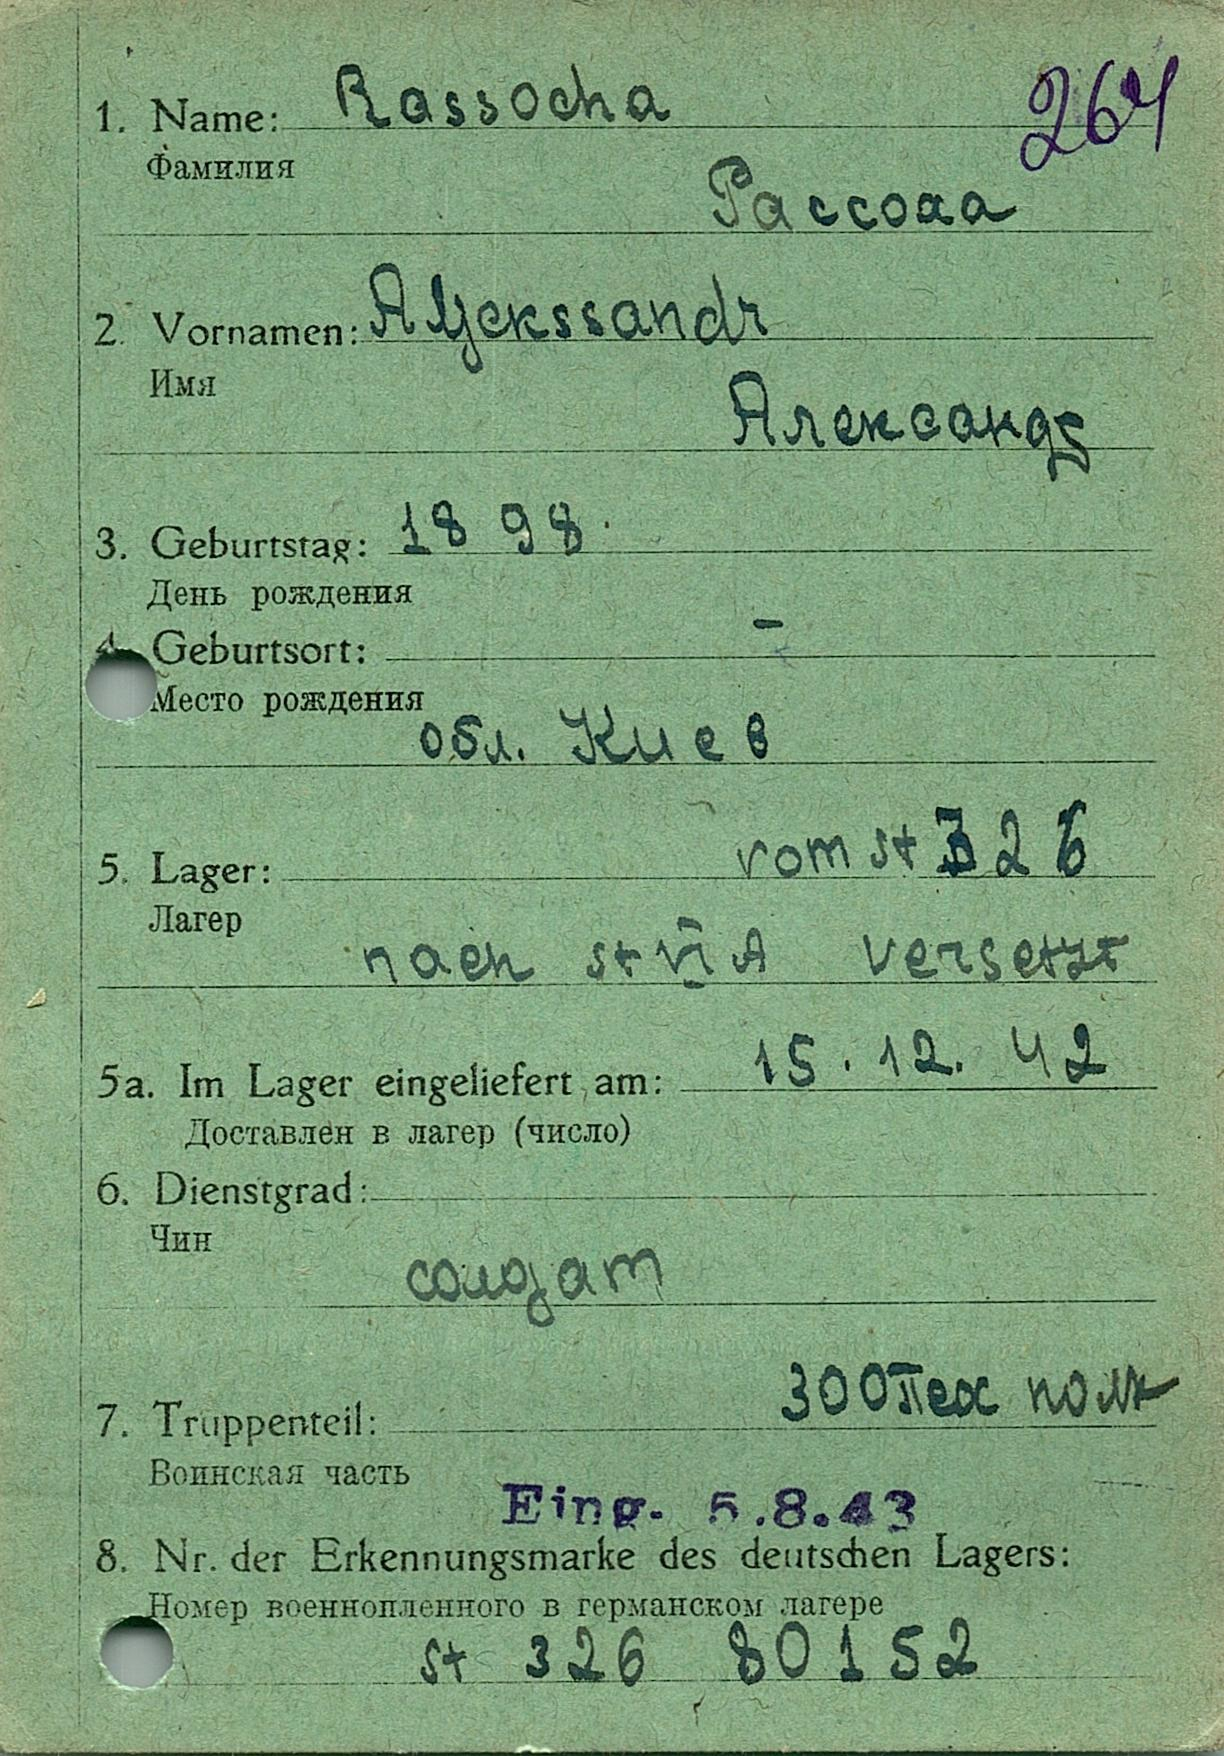 264
1. Name: Rassocha
Фамилия
Рассоха
2. Vornamen: Aljekssandr
Имя
Александр
3. Geburtstag: 1898
День рождения
4. Geburtsort: -
Место рождения
обл. Киев
5. Lager: vom St 326
Лагер
nach St VI A versetzt
5a. Im Lager eingeliefert am: 15.12.42
Доставлен в лагер (число)
6. Dienstgrad:
Чин
солдат
7. Truppenteil: 300 Пех полк
Воинская часть
Eing. 5.8.43
8. Nr. der Erkennungsmarke des deutschen Lagers:
Номер военнопленного в германском лагере
St 326 80152